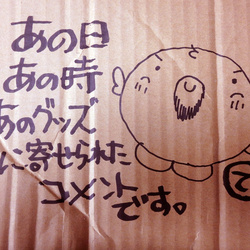 あの日
あの時
あのグッズ
に寄せられた
コメント
です。